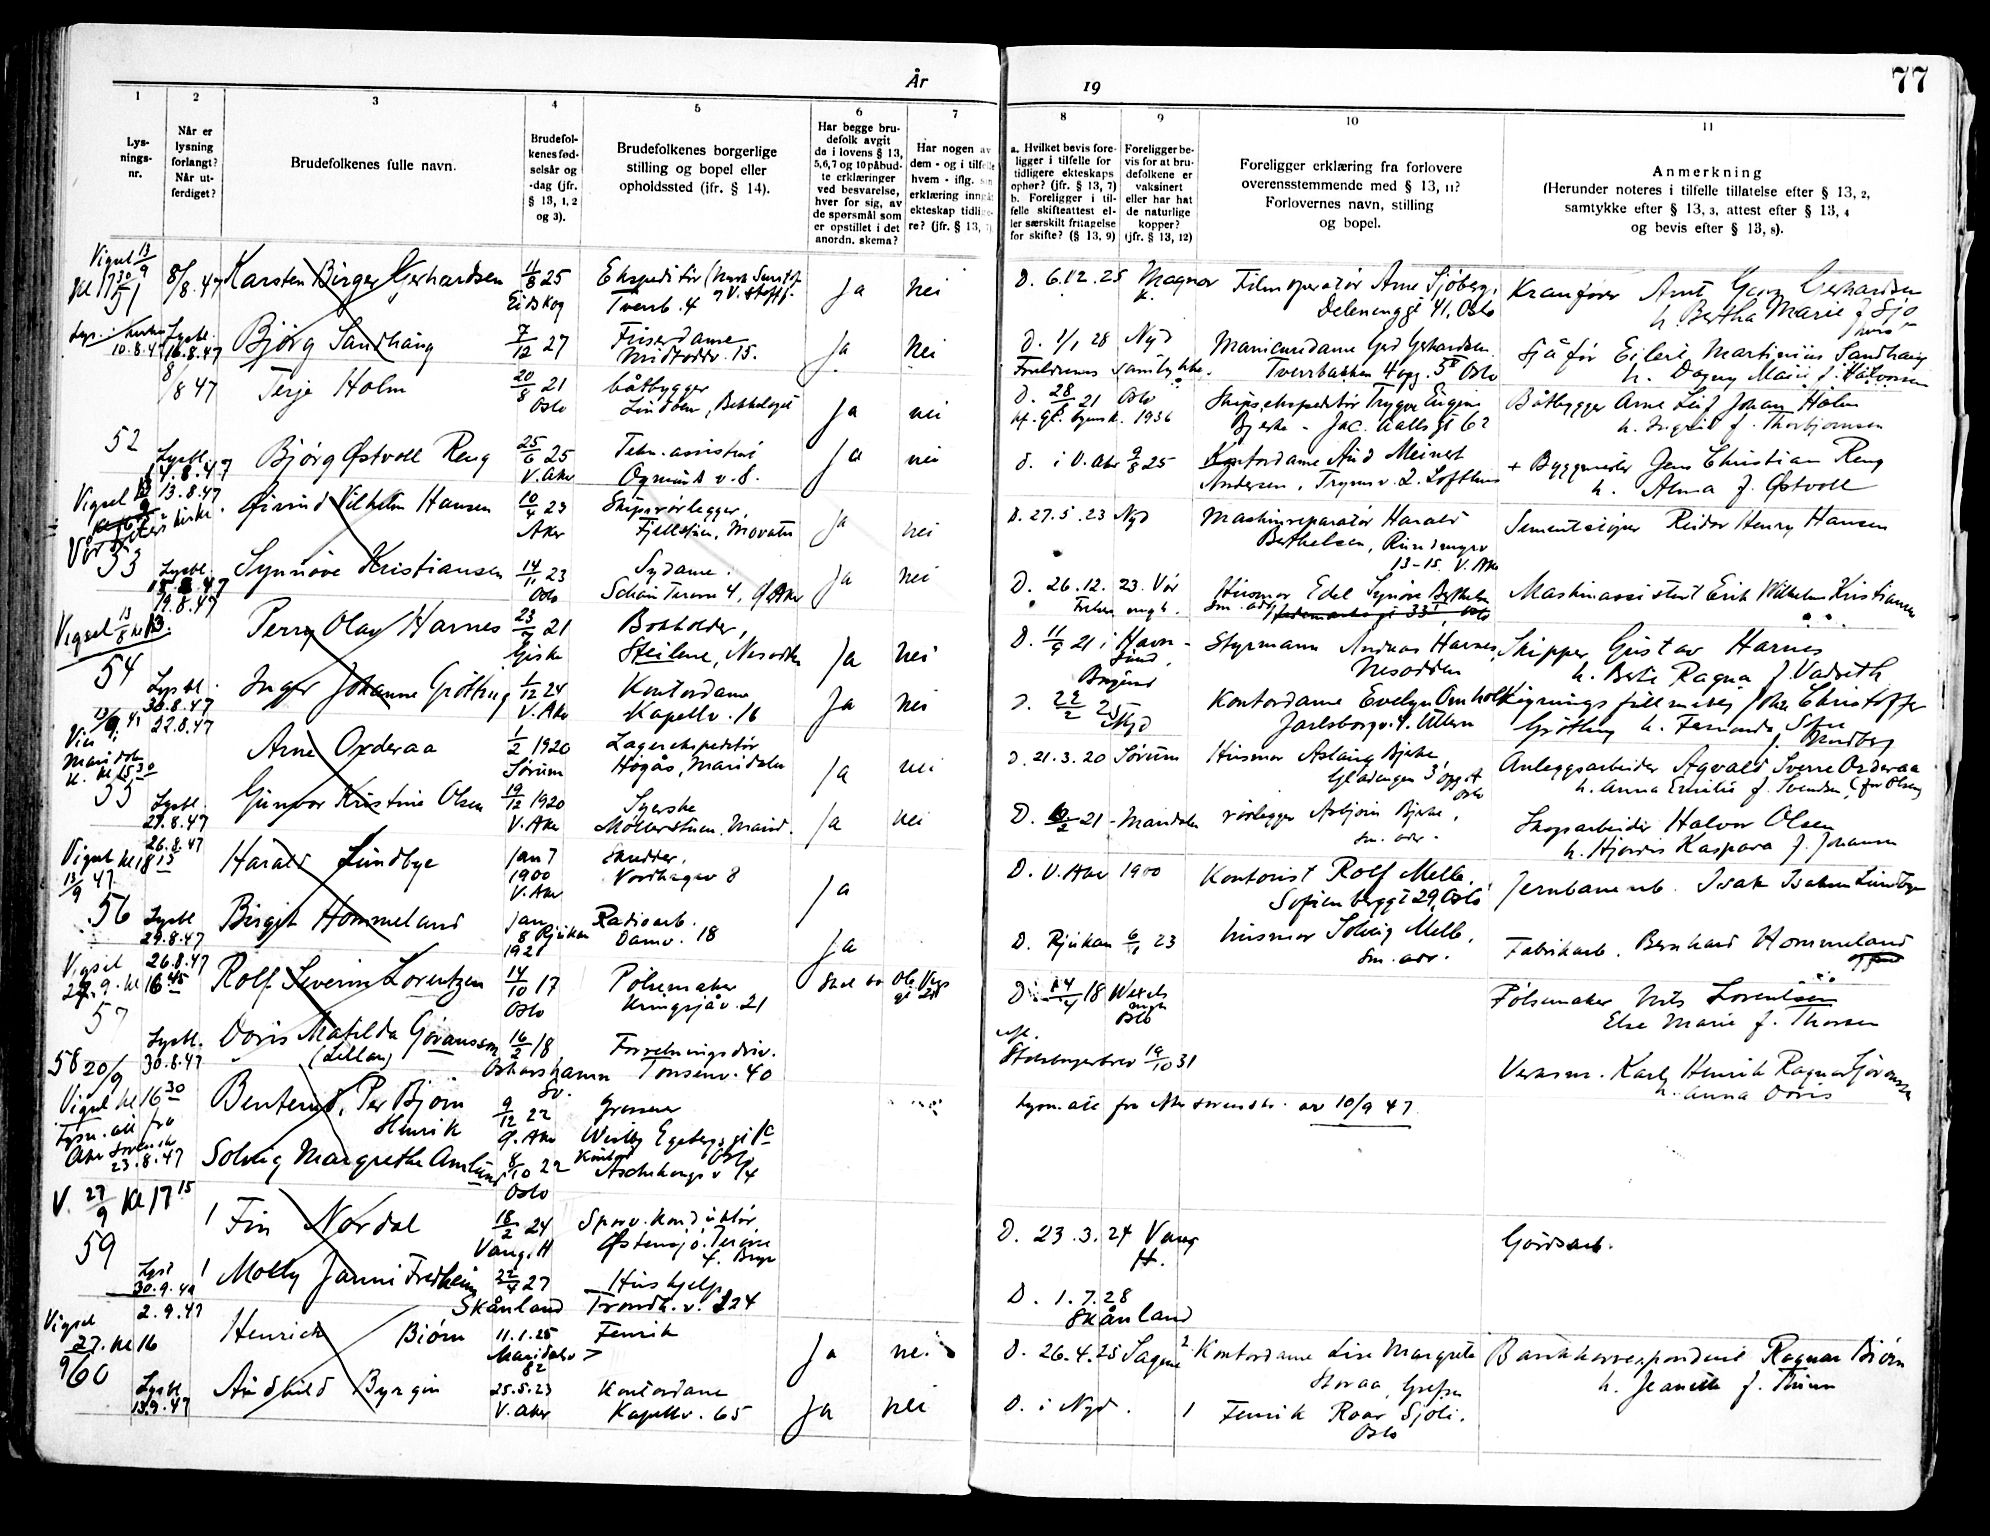 År 19
77
1
2
3
4
5
6
7
8
9
10
11
Lys-
nings-
nr.
Når er
lysning
forlangt?
Når ut-
ferdiget?
Brudefolkenes fulle navn.
Brudefol-
kenes fød-
selsår og
-dag (jfr.
§ 13, 1, 2
og 3).
Brudefolkenes borgerlige
stilling og bopel eller
opholdssted (jfr. § 14).
Har begge bru-
defolk avgit
de i lovens § 13,
5,6,7 og 10 påbud-
te erklæringer
ved besvarelse,
hver for sig, av
de spørsmål som
er opstillet i det
anordn. skema?
Har nogen av
dem - og i tilfelle
hvem - iflg. sin
erklæring inngått
ekteskap tidlige-
re? (jfr. § 13, 7)
a. Hvilket bevis fore-
ligger i tilfelle for
tidligere ekteskaps
ophør? (jfr. § 13, 7)
b. Foreligger i til-
felle skifteattest el-
ler særskilt fritagelse
for skifte? (§ 13, 9)
Foreligger be-
vis for at bru-
defolkene er
vaksinert
eller har hat
de naturlige
kopper?
(jfr. § 13, 12)
Foreligger erklæring fra forlovere
overensstemmende med § 13, 11?
Forlovernes navn, stilling
og bopel.
Anmerkning
(Herunder noteres i tilfelle tillatelse efter § 13, 2,
samtykke efter § 13, 3, attest efter § 13, 4
og bevis efter § 13, 8).
Vigsel 13/9
kl 17 30
51
8/8.47
Karsten Birger Gerhardsen
11/8 25
Eidskog
Ekspeditør
Tverrb. 4
Ja
nei
D. 6.12.25 Magnor
k.
Filmoperatør Arne Sjøberg,
Delenenggt 41, Oslo
Kranfører Arnt Georg Gerhardsen
h. Bertha Marie f. Sjø
10.8.47
Lysbl.
16.8.47
Bjørg Sandhaug
7/12 27
Friserdame
Midtoddv. 15.
Ja
Nei
D. 1/1 28 Nyd
Foreldrenes samtykke.
Manicuredame Gerd Gerhardsen
Tverrbakken 4 opg. 5 Oslo
Sjåfør Eilert Martinius Sandhaug
h. Dagny Marie f. Halvorsen
52
8/8 47
Terje Holm
20/8 21
Oslo
båtbygger
Lindøen, Bekkelaget
Ja
nei
D. 28/ 21 Oslo
1936
Skipsekspeditør Trygve Eugene
Bjerke - Jac. Aallsgt 62
Båtbygger Arne Leif Johan Holm
h. Ingrid f. Thorbjørnsen
Lysbl.
14.8.47
Bjørg Østvoll Reng
25/6 25
V. Aker
Tekn. assistent
Ogmunds v. 8.
Ja
nei
d. i V. Aker 9/8 25
Kontordame Aud Meinert
Andersen, Tryms v. 2. Lofthus
+ Byggmester Jens Christian Reng
h. Alma f. Østvoll
Vigsel 13/9
Vår Frelsers kirke.
53
13.8.47
Øivind Vilhelm Hansen
10/4 23
Aker
Skipsrørlegger,
Fjellstuen, Movatn
Ja
nei
D. 27.5.23 Nyd
Maskinreparatør Harald
Berthelsen, Rundingv
13-15. V. Aker
Sementstøper Reidar Henry Hansen
Lysbl.
15.8.47
Synnøve Kristiansen
14/11 23
Oslo
Sydame.
Ja
nei
D. 26.12.23. Vår
Husmor Edel Synøve Berthelsen
sm. adr.
Maskinassistent Erik Wilhelm Kristiansen
Vigsel 13/8 kl 13.
54
19.8.47
Perry Olav Harnes
23/ 21
Giske
Bokholder,
Steilene, Nesodden
Ja
nei
D. 11/9 21 i Havn-
sund,
Borgund
Styrmann Andreas Harnes,
Nesodden
Skipper Gustav Harnes
h. Berte Ragna f. Vadseth
Lysbl.
30.8.47
Inger Johanne Grøttug
1/12 24
V. Aker
Kontordame
Kapellv. 16
Ja
nei
D. 22/2 25
Nyd
Kontordame Evelyn Omholt
Jarlsborgv. 4. Ullern
Ligningsfullmektig Johs. Christoffer
h. Fernanda Sofie
f. Lundberg
13/9 47
Maridalen
k. kl 15 30
55
22.8.47
Arne Opderaa
1/2 1920
Sørum
Lagerekspeditør
Høgås, Maridalen
Ja
nei
D. 21.3.20 Sørum
Husmor Aslaug Bjerke,
Gladengen 3, opg A
Oslo
Anleggsarbeider Agvald Sverre Opderaa
h. Anna Emilie f. Svendsen (før Olsen)
Lysbl.
27.8.47
Gunvor Kristine Olsen
19/12 1920
V. Aker
Syerske
Møllerstuen, Marid.
Ja
nei
D. /2 21 - Maridalen
rørlegger Asbjørn Bjerke,
sm. adr.
Skogsarbeider Halvor Olsen
h. Hjørdis Kaspara f. Johansen
Vigsel kl 18 15
13/9 47.
56
26.8.47
Harald Lundbye
Jan 7
1900
V. Aker
Skredder.
Nordhagav 8
Ja
D. V. Aker 1900
Kontorist Rolf Melb.
Sofienberggt 29, Oslo
Jernbanearb. Isak Isaksen Lundbye
Lysbl
29.8.47
Birgit Hommeland
Jan
8 Rjukan
1921
Radioarb.
Damv. 18
Ja
D. Rjukan 6/ 23
husmor Solveig Melb.
sm. adr.
Fabrikarb. Bernhard Hommeland
Vigsel
27.9. kl 16 45
57
26.8.47
Rolf Severin Lorentzen
14/10 17
Oslo
Pølsemaker
Kringsjåv. 21
D. 14/4 18
Oslo
Pølsemaker Nils Lorentsen
Else Marie f. Thorsen
Lysbl.
30.8.47
Doris Matilda Göransson
(Lillan)
16/2 18
Oskarshamn
Sv.
Forretningsdriv.
Tonsenv. 40
Statsborgerbrev 19/10 31
Verksm. Karl Henrik Ragnar Göransson
h. Anna Doris
58 20/9
Vigsel kl 16 30
Lysn. att fra
Aker sorenskr
23.8.47
Benterud, Per Bjørn
Henrik
9/12 22
Ø. Aker
Grosserer
Westby Egebergs gt 1c
Oslo
lysn. att fra Aker sorenskr. av 10/9 47
Solveig Margrethe Amlund
8/10 22
Oslo
Kontor
Aschehougs v 14
V. 27/9 kl 17 15
59
Fin Nordal
18/2 24
Vang. H
Sporv. konduktør
Østensjø Terasse
4. Bryn
D. 23.3.24 Vang
H.
Gårdsarb.
Lyst
30.9.47
Molly Janni Fredheim
22/4 27
Skånland
Hushjelp
Trondh. v. 224
D. 1.7.28
Skånland
Vigsel
27/9. kl 16
60
2.9.47
Henrick Biørn
11.1.25
Maridalsv
82
Fenrik
Ja
nei
D. 26.4.25 Sagene
2 Kontordame Lise Margrete
Storaa, Grefsen
Bankkorrespondent Ragnar Biørn
h. Jeanette f. Thien
Lysbl
13.9.47
Audhild Byrgin
25.5.23
V. Aker
Kontordame
Kapellv. 65
Ja
nei
D. i Nyd.
1 Fenrik Roar Sjoli.
Oslo